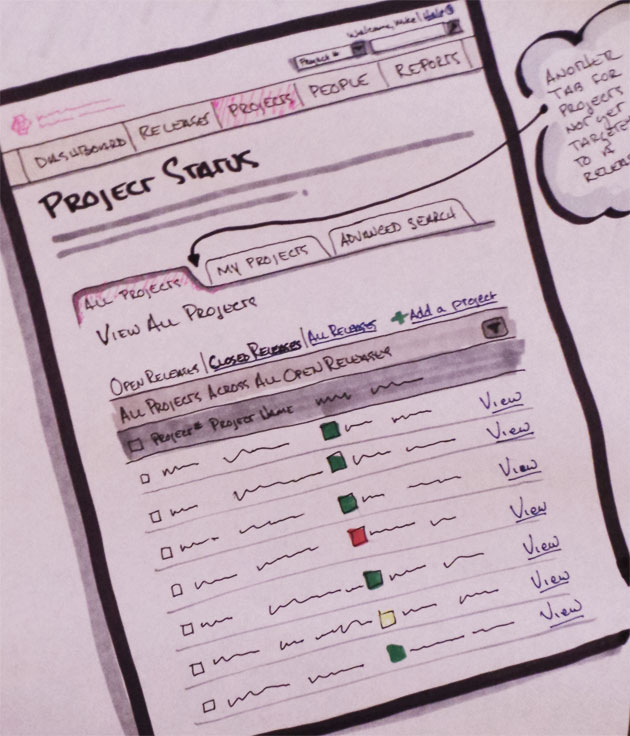 Welcome, Mike! Help
Project #
DASHBOARD RELEASES PROJECTS PEOPLE REPORTS
PROJECT STATUS
ALL PROJECTS MY PROJECTS ADVANCED SEARCH
VIEW ALL PROJECTS
OPEN RELEASES | CLOSED RELEASES | ALL RELEASES + Add a project
ALL PROJECTS ACROSS ALL OPEN RELEASES
PROJECT# PROJECT NAME
View
View
View
View
View
View
View
ANOTHER
TAB FOR
PROJECTS
NOT YET
TARGETED
TO A
RELEASE